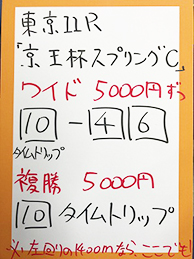 東京11R
「京王杯スプリングC」
ワイド 5000円ずつ
10-4 6
タイムトリップ
複勝 5000円
10 タイムトリップ
※左回りの1400mなら、ここでも